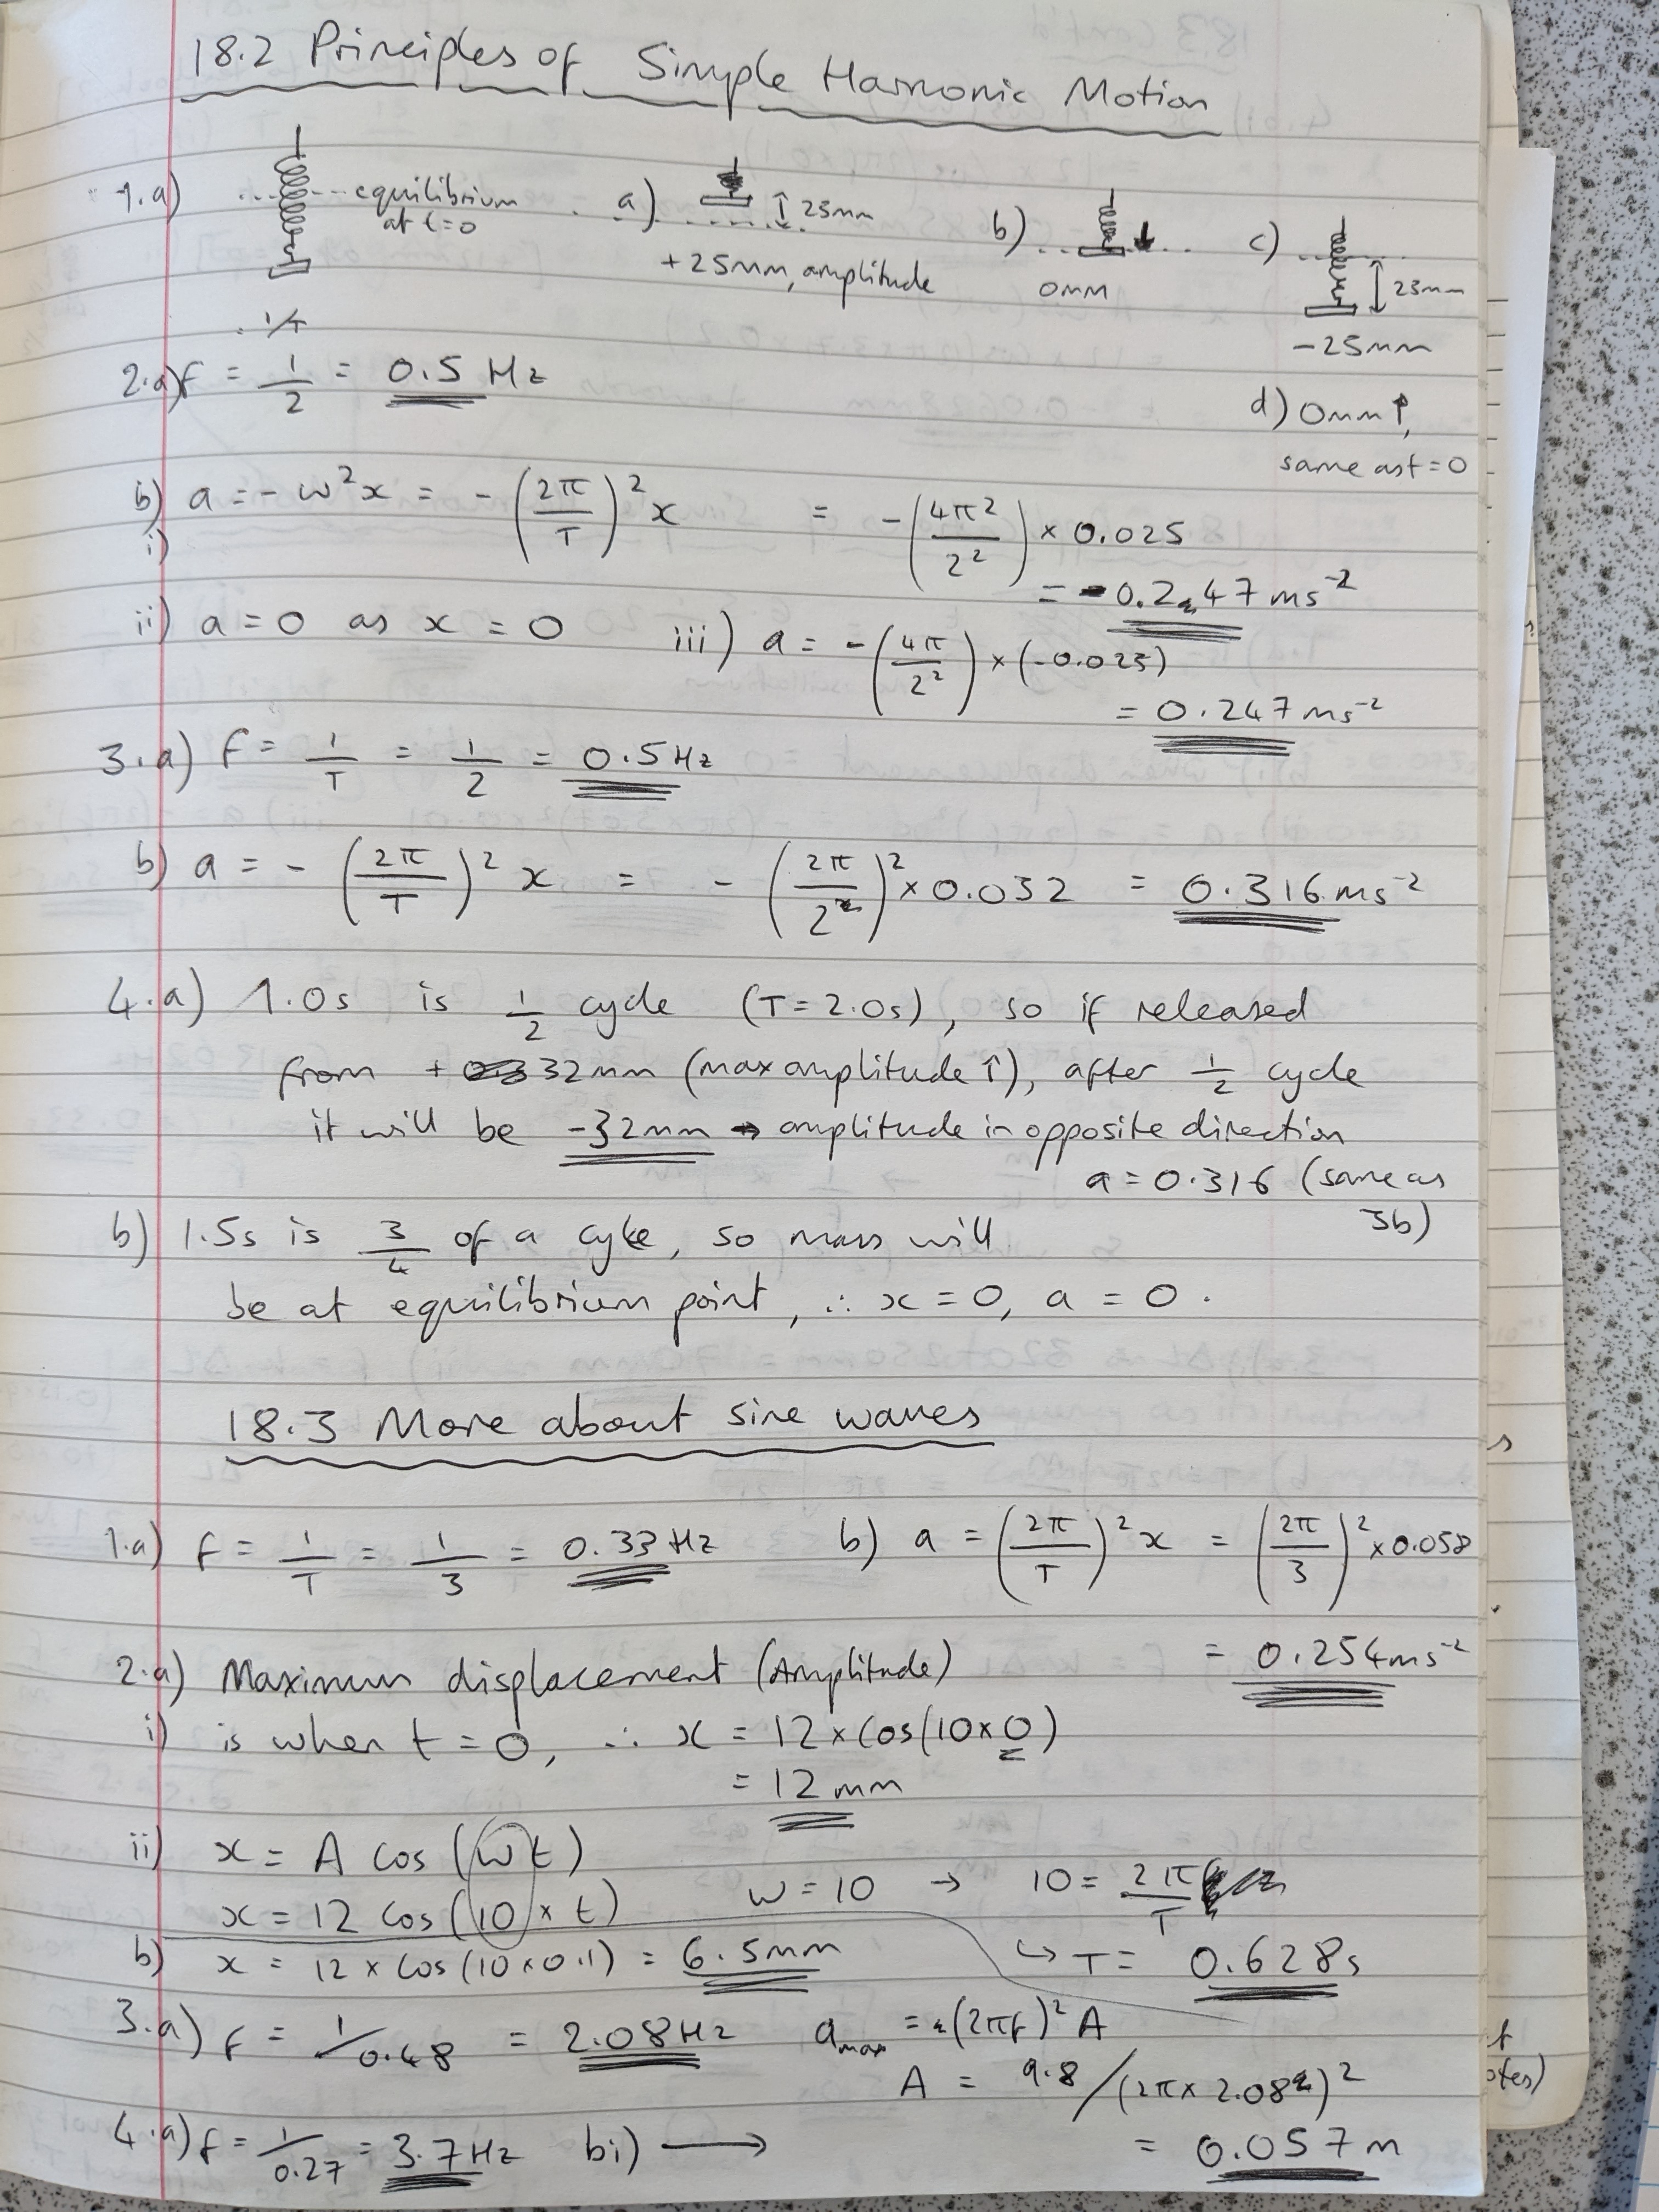 18.2 Principles of Simple Harmonic Motion
1.a) equilibrium at t=0
a) 25mm
+25mm, amplitude
b) 0mm
c) 25mm
-25mm
d) 0mm ↑,
same as t=0
1/T
2.a) f = 1/2 = 0.5 Hz
b) i) a = -ω²x = -(2π/T)² x = -(4π²/2²) × 0.025
= -0.247 ms⁻²
ii) a = 0 as x = 0 iii) a = -(4π/2²) × (-0.025)
= 0.247 ms⁻²
3.a) f = 1/T = 1/2 = 0.5 Hz
b) a = -(2π/T)² x = -(2π/2)² × 0.032 = 0.316 ms⁻²
4.a) 1.0s is 1/2 cycle (T = 2.0s), so if released
from +32mm (max amplitude ↑), after 1/2 cycle
it will be -32mm → amplitude in opposite direction
a = 0.316 (same as
3b)
b) 1.5s is 3/4 of a cycle, so mass will
be at equilibrium point, ∴ x = 0, a = 0.
18.3 More about sine waves
1.a) f = 1/T = 1/3 = 0.33 Hz b) a = (2π/T)² x = (2π/3)² × 0.058
= 0.254 ms⁻²
2.a) Maximum displacement (Amplitude)
i) is when t = 0, ∴ x = 12 × cos(10 × 0)
= 12 mm
ii) x = A cos (ωt)
x = 12 cos (10 × t) ω = 10 → 10 = 2π/T
↳ T = 0.628s
b) x = 12 × cos(10 × 0.1) = 6.5mm
3.a) f = 1/0.48 = 2.08 Hz a max = (2πf)² A
A = 9.8/(2π × 2.08)²
= 0.057 m
4.a) f = 1/0.27 = 3.7 Hz bi) →